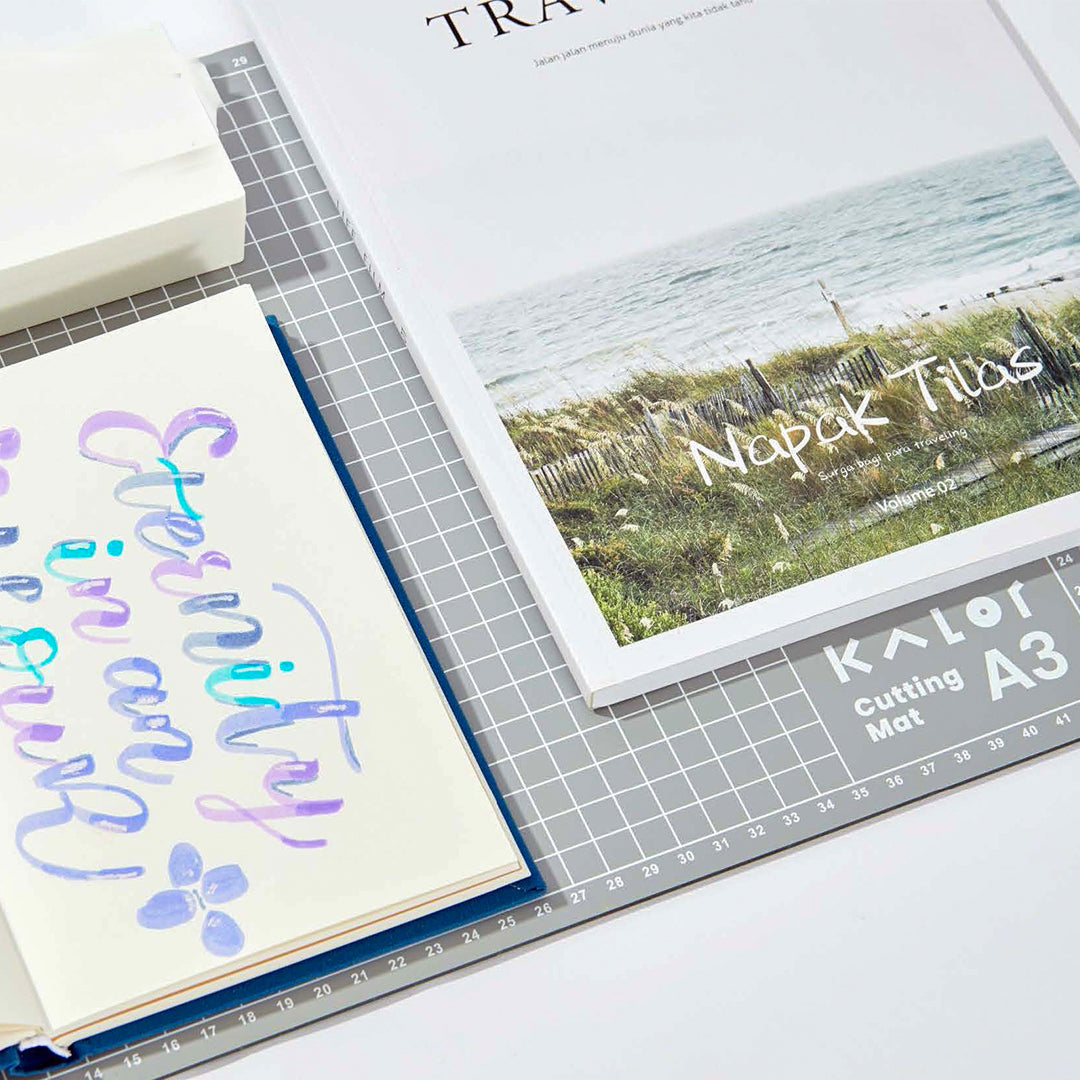 TRAV
Jalan jalan menuju dunia yang kita tidak tahu
Napak Tilas
Surga bagi para traveling
Volume.02
Eternity
in an
KALOr
Cutting
Mat
A3
29
24
14 15 16 17 18 19 20 21 22 23 24 25 26 27 28 29 30 31 32 33 34 35 36 37 38 39 40 41